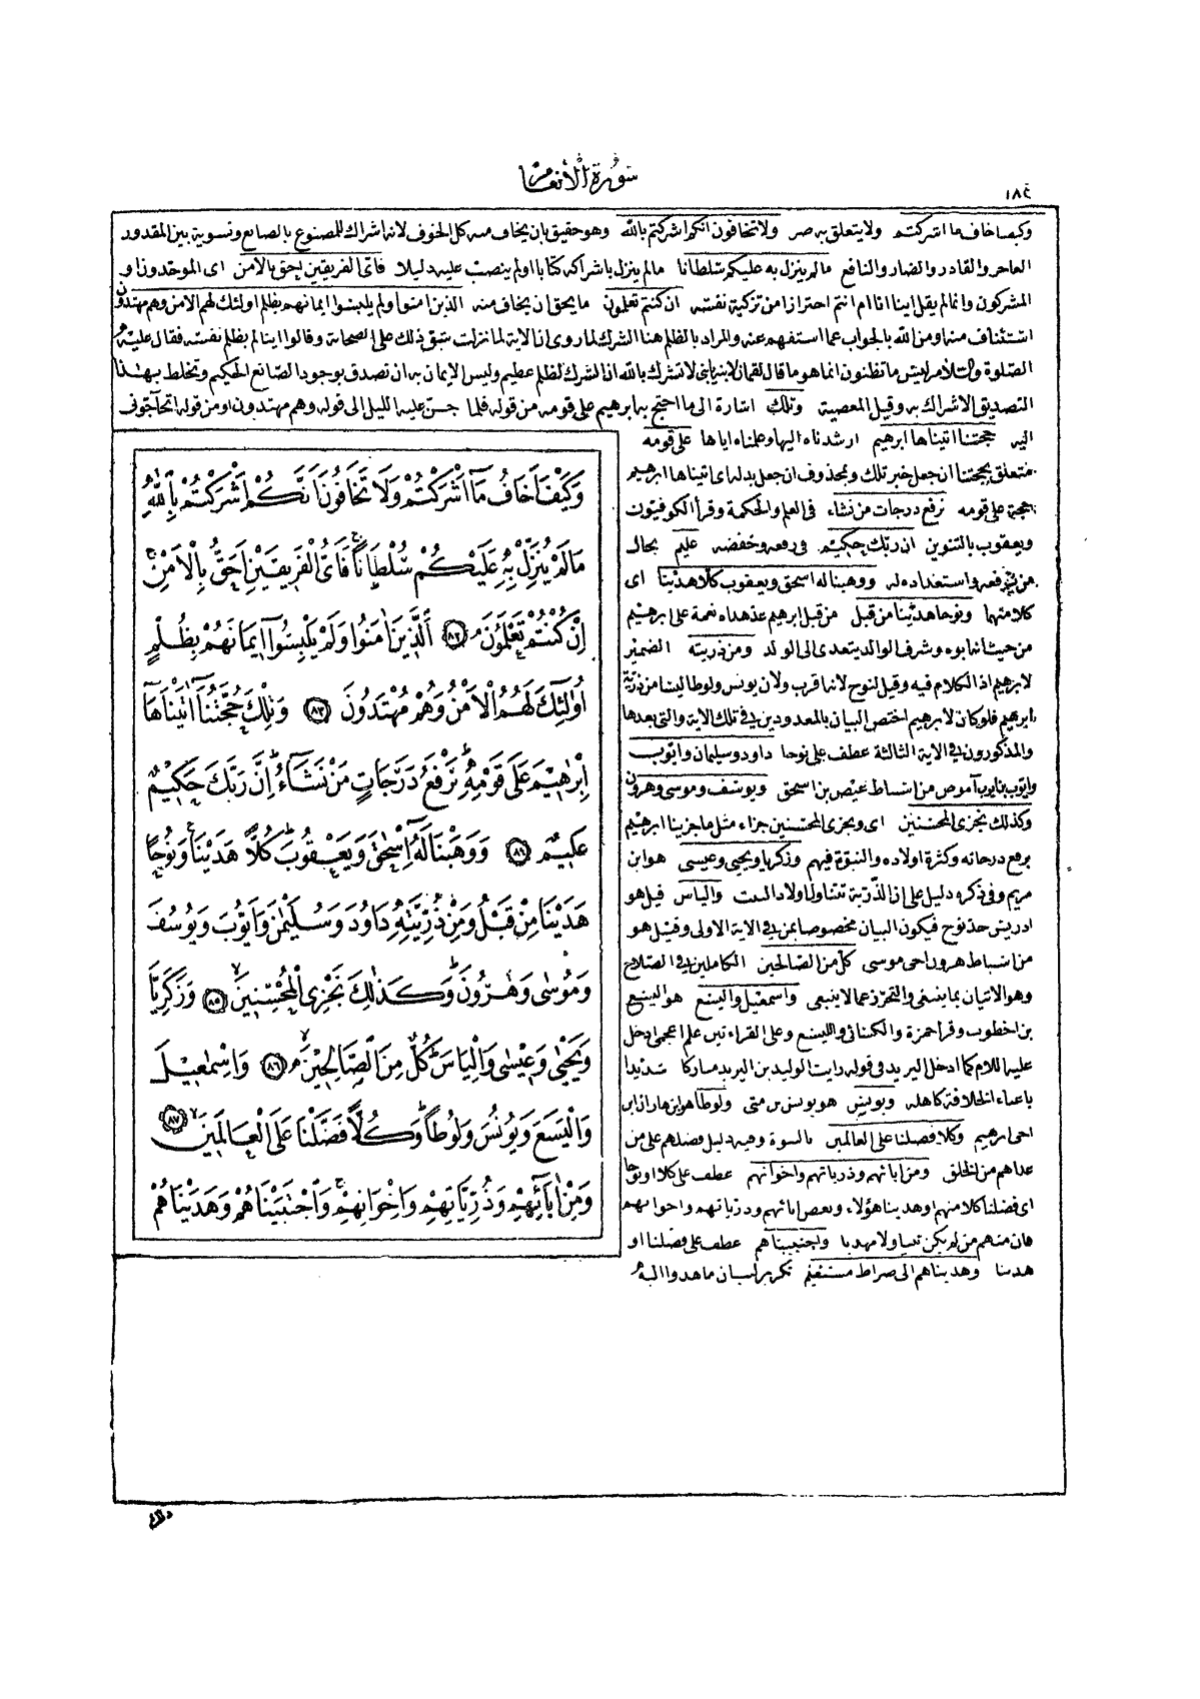 سورة الأنعام
١٨٤
وكيف اخاف ما اشركتم ولا يتعلق به ضر ولا تخافون انكم اشركتم بالله وهو حقيق بان يخاف منه كل الخوف لانه اشراك للمصنوع بالصانع وتسوية بين المقدور
العاجز والقادر والضار والنافع مالم ينزل به عليكم سلطانا مالم ينزل باشراكه كتابا اولم ينصب عليه دليلا فاى الفريقين احق بالامن اى الموحدون او
المشركون وانما لم يقل اينا انا ام انتم احترازا من تزكية نفسه ان كنتم تعلمون ما يحق ان يخاف منه الذين امنوا ولم يلبسوا ايمانهم بظلم اولئك لهم الامن وهم مهتدون
استئناف منه او من الله بالجواب عما استفهم عنه والمراد بالظلم هنا الشرك لما روى ان الاية لما نزلت شق ذلك على الصحابة وقالوا اينا لم يظلم نفسه فقال عليه
الصلوة والسلام ليس ما تظنون انما هو ما قال لقمان لابنه يابنى لا تشرك بالله ان الشرك لظلم عظيم وليس الايمان به ان تصدق بوجود الصانع الحكيم وتخلط بهذا
التصديق الاشراك به وقيل المعصية وتلك اشارة الى ما احتج به ابرهيم على قومه من قوله فلما جن عليه الليل الى قوله وهم مهتدون او من قوله اتحاجونى
اليه حجتنا اتيناها ابرهيم ارشدناه اليها وعلمناه اياها على قومه
متعلق بحجتنا ان جعل خبر تلك وبمحذوف ان جعل بدله اى اتيناها ابرهيم
حجة على قومه نرفع درجات من نشاء فى العلم والحكمة وقرأ الكوفيون
ويعقوب بالتنوين ان ربك حكيم فى رفعه وخفضه عليم بحال
من يرفعه واستعداده له ووهبنا له اسحق ويعقوب كلا هدينا اى
كلا منهما ونوحا هدينا من قبل من قبل ابرهيم عد هداه نعمة على ابرهيم
من حيث انه ابوه وشرف الوالد يتعدى الى الولد ومن ذريته الضمير
لابرهيم اذ الكلام فيه وقيل لنوح لانه اقرب ولان يونس ولوطا ليسا من ذرية
ابرهيم فلو كان لابرهيم اختص البيان بالمعدودين فى تلك الاية والتى بعدها
والمذكورون فى الاية الثالثة عطف على نوحا داود وسليمان وايوب
وايوب بن اموص من اسباط عيص بن اسحق ويوسف وموسى وهرون
وكذلك نجزى المحسنين اى ونجزى المحسنين جزاء مثل ما جزينا ابرهيم
برفع درجاته وكثرة اولاده والنبوة فيهم وزكريا ويحيى وعيسى هو ابن
مريم وفى ذكره دليل على ان الذرية تتناول اولاد البنت والياس قيل هو
ادريس جد نوح فيكون البيان مخصوصا بمن فى الاية الاولى وقيل هو
من اسباط هرون اخى موسى كل من الصالحين الكاملين فى الصلاح
وهو الاتيان بما ينبغى والتحرز عما لا ينبغى واسمعيل واليسع هو اليسع
بن اخطوب وقرأ حمزة والكسائى والليسع وعلى القراءتين علم اعجمى ادخل
عليه اللام كما ادخل اليزيد فى قوله رايت الوليد بن اليزيد مباركا شديدا
باعباء الخلافة كاهله ويونس هو يونس بن متى ولوطا هو ابن هاران ابن
اخى ابرهيم وكلا فضلنا على العالمين بالنبوة وفيه دليل فضلهم على من
عداهم من الخلق ومن ابائهم وذرياتهم واخوانهم عطف على كلا او نوحا
اى فضلنا كلا منهم او هدينا هؤلاء وبعض ابائهم وذرياتهم واخوانهم
فان منهم من لم يكن نبيا ولا مهديا واجتبيناهم عطف على فضلنا او
هدينا وهديناهم الى صراط مستقيم تكرير لبيان ما هدوا اليه
وَكَيْفَ اَخَافُ مَٓا اَشْرَكْتُمْ وَلَا تَخَافُونَ اَنَّكُمْ اَشْرَكْتُمْ بِاللّٰهِ
مَالَمْ يُنَزِّلْ بِهِ عَلَيْكُمْ سُلْطَاناً فَاَىُّ الْفَرِيقَيْنِ اَحَقُّ بِالْاَمْنِ
اِنْ كُنْتُمْ تَعْلَمُونَ ٨٢ اَلَّذِينَ اٰمَنُوا وَلَمْ يَلْبِسُٓوا اِيمَانَهُمْ بِظُلْمٍ
اُولٰٓئِكَ لَهُمُ الْاَمْنُ وَهُمْ مُهْتَدُونَ ٨٣ وَتِلْكَ حُجَّتُنَٓا اٰتَيْنَاهَٓا
اِبْرٰهِيمَ عَلٰى قَوْمِهِ نَرْفَعُ دَرَجَاتٍ مَنْ نَشَٓاءُ اِنَّ رَبَّكَ حَكِيمٌ
عَلِيمٌ ٨٤ وَوَهَبْنَا لَهُٓ اِسْحٰقَ وَيَعْقُوبَ كُلًّا هَدَيْنَا وَنُوحًا
هَدَيْنَا مِنْ قَبْلُ وَمِنْ ذُرِّيَّتِهِ دَاوُدَ وَسُلَيْمٰنَ وَاَيُّوبَ وَيُوسُفَ
وَمُوسٰى وَهٰرُونَ وَكَذٰلِكَ نَجْزِى الْمُحْسِنِينَ ٨٥ وَزَكَرِيَّا
وَيَحْيٰى وَعِيسٰى وَاِلْيَاسَ كُلٌّ مِنَ الصَّالِحِينَ ٨٦ وَاِسْمٰعِيلَ
وَالْيَسَعَ وَيُونُسَ وَلُوطاً وَكُلًّا فَضَّلْنَا عَلَى الْعَالَمِينَ ٨٧
وَمِنْ اٰبَٓائِهِمْ وَذُرِّيَّاتِهِمْ وَاِخْوَانِهِمْ وَاجْتَبَيْنَاهُمْ وَهَدَيْنَاهُمْ
ذلك